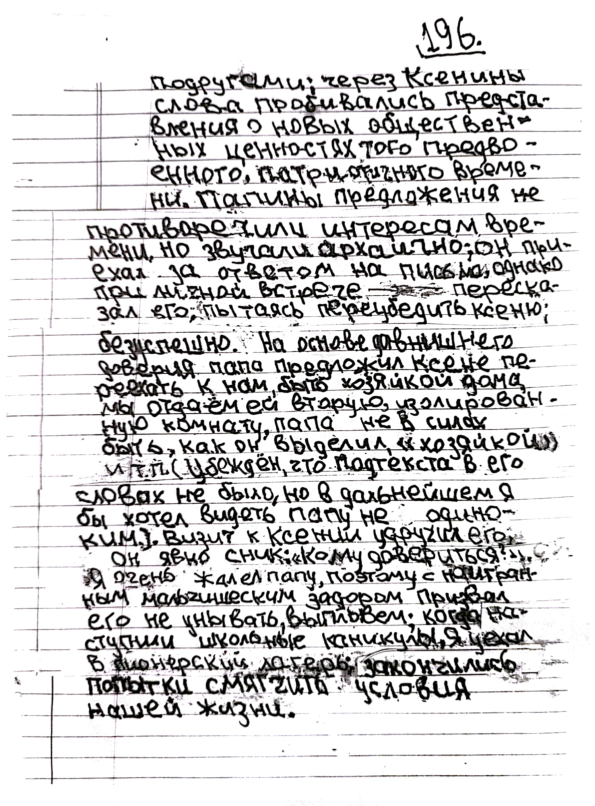 196.
подругами; через Ксенины
слова пробивались предста-
вления о новых обществен-
ных ценностях того предво-
енного, патриотичного време-
ни. Папины предложения не
противоречили интересам вре-
мени, но звучали архаично; он при-
ехал за ответом на письма, однако
при личной встрече переска-
зал его; пытаясь переубедить Ксеню;
безуспешно. На основе давнишнего
доверия папа предложил Ксене пе-
реехать к нам, быть хозяйкой дома,
мы отдаём ей вторую, изолирован-
ную комнату, папа не в силах
быть, как он выделил, «хозяйкой»
и т.п. (Убеждён, что подтекста в его
словах не было, но в дальнейшем я
бы хотел видеть папу не одино-
ким.). Визит к Ксении удручил его,
он явно сник: «Кому довериться?».
Я очень жалел папу, поэтому с наигран-
ным мальчишеским задором призвал
его не унывать, выплывем. Когда на-
ступили школьные каникулы, я уехал
в пионерский лагерь, закончились
попытки смягчить условия
нашей жизни.